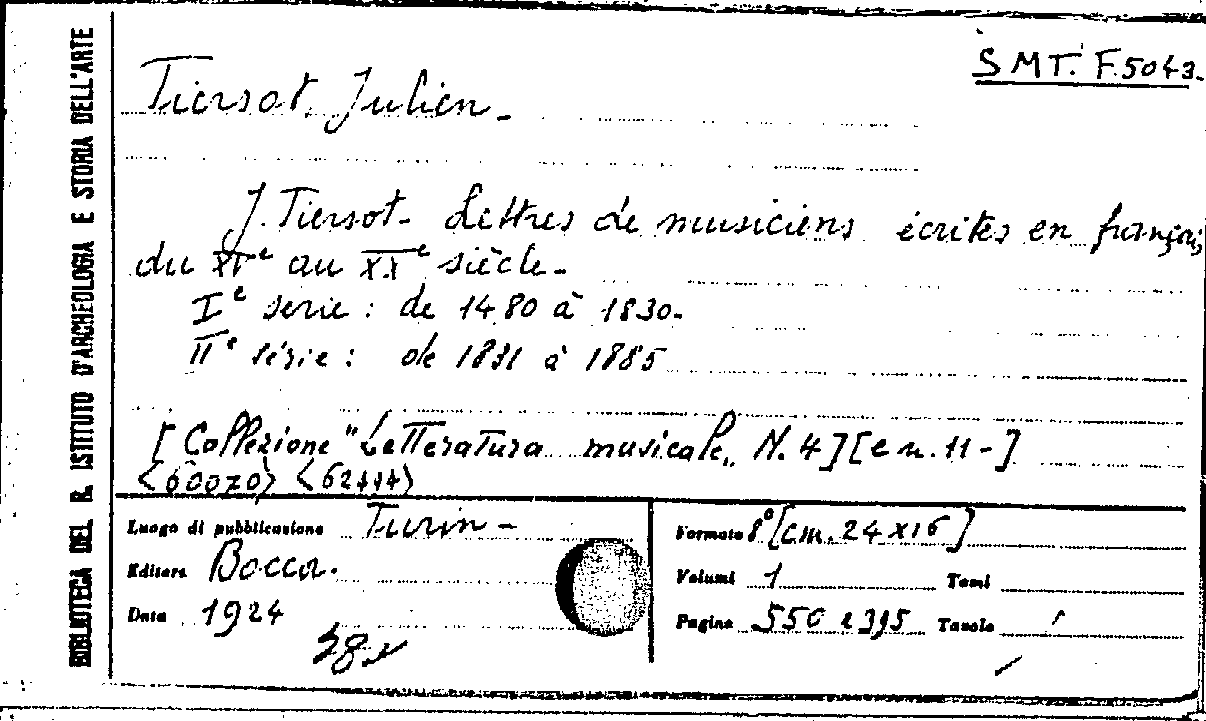 BIBLIOTECA DEL R. ISTITUTO D'ARCHEOLOGIA E STORIA DELL'ARTE
SMT. F.5043.
Tiersot, Julien -
J. Tiersot - Lettres de musiciens écrites en français
du XVe au XXe siècle -
Ie serie : de 1480 à 1830.
IIe série : de 1831 à 1885
[Collezione "Letteratura musicale„ N. 4] [e n. 11 -]
<60070> <62444>
Luogo di pubblicazione Turin -
Formato 8° [cm. 24 x 16]
Editore Bocca.
Volumi 1 Tomi
Data 1924
Pagine 550 e 395 Tavole /